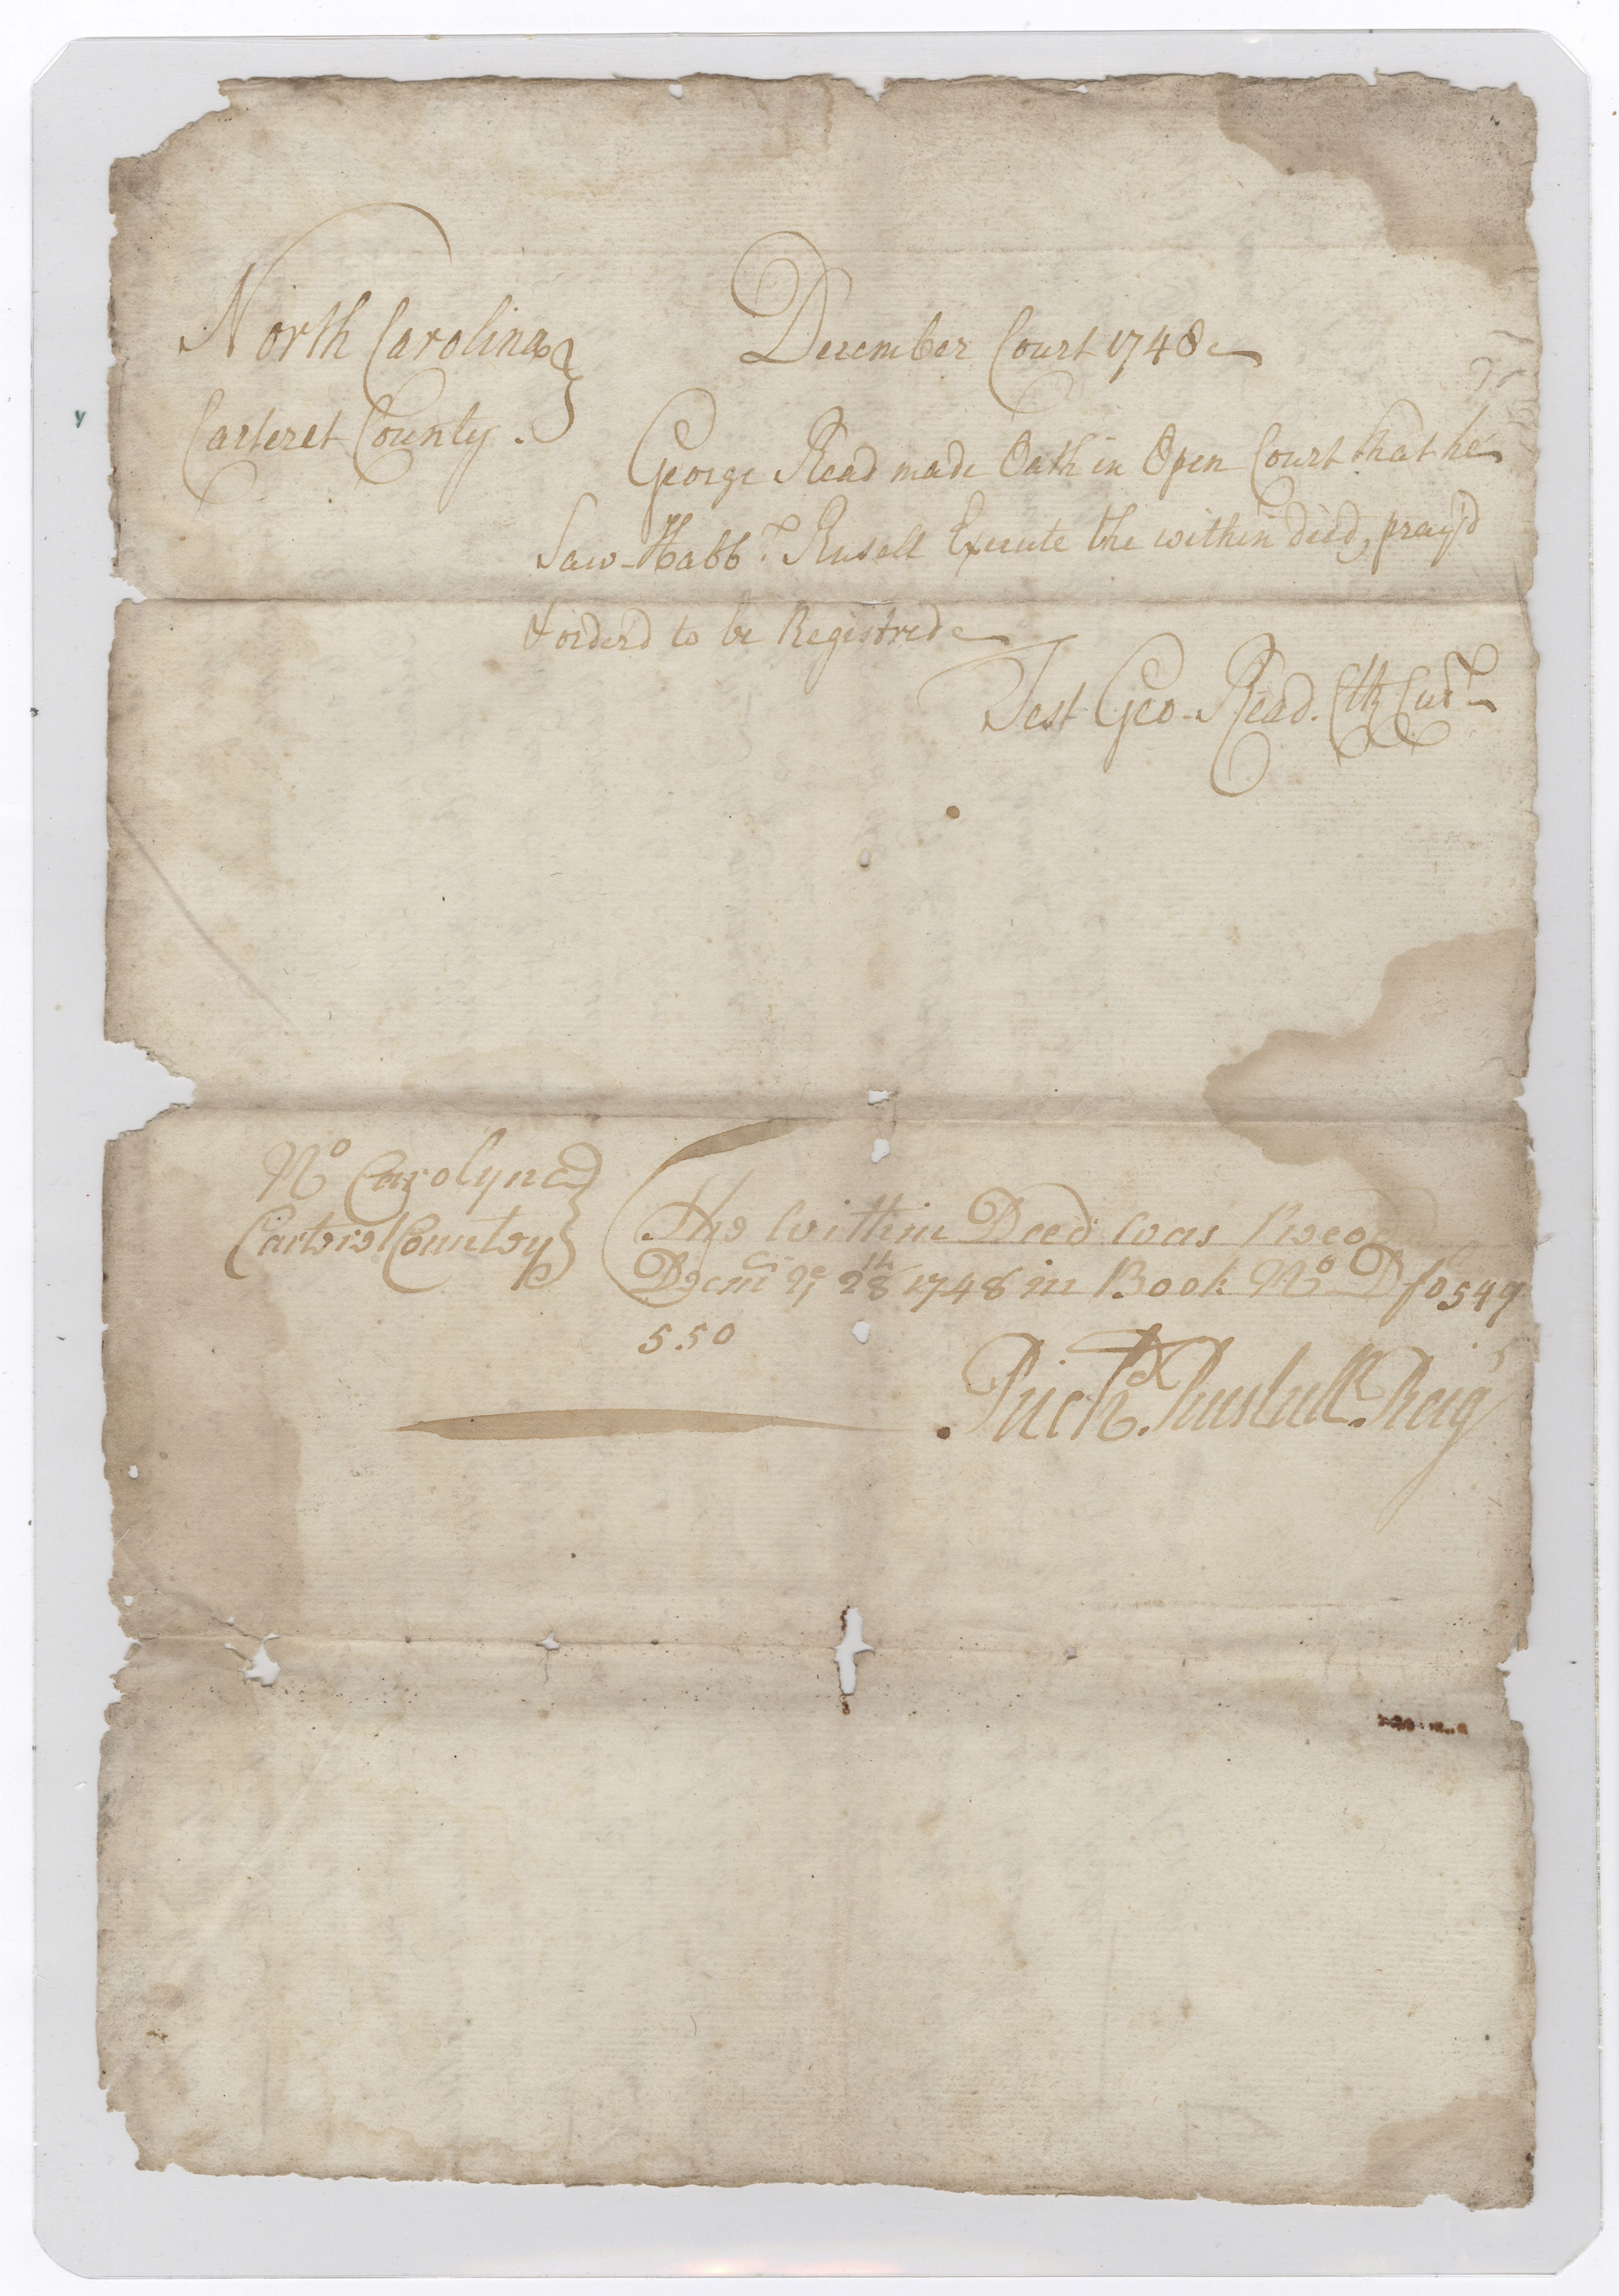 North Carolina
Carteret County.
December Court 1748
George Read made Oath in Open Court that he
Saw Habb.r Rusell Execute the within deed, pray'd
& order'd to be Registred
Test Geo. Read. Clk Cur.r
No Carolyna
Carteret County
The within Deed was Reco
Decmr ye 28th 1748 in Book No D fo 549
550
Richd. Rustull. Reig